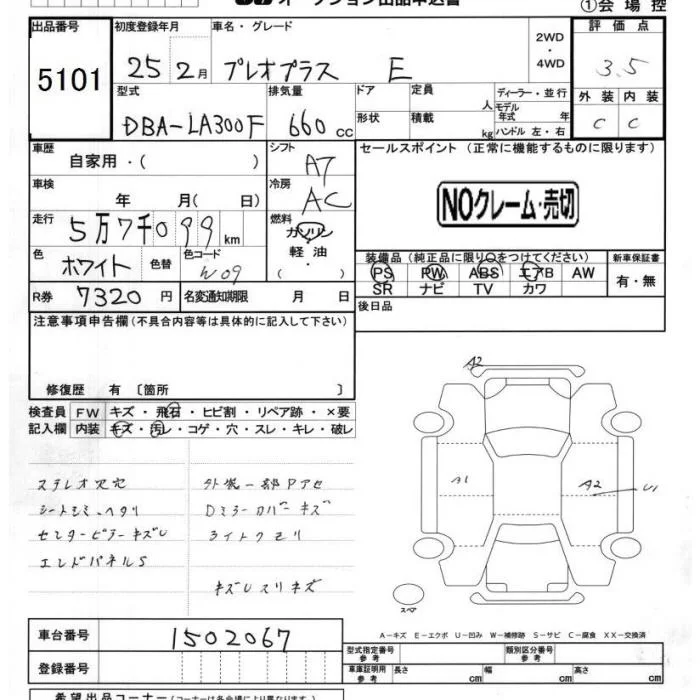 オークション出品申込書
①会場控
出品番号 初度登録年月 車名・グレード 2WD ・ 4WD 評価点
5101 25 2月 プレオプラス E 3.5
型式 排気量 ドア 定員 人 ディーラー・並行 外装 内装
DBA-LA300F 660 cc 形状 積載 kg モデル年式 年 ハンドル 左・右 C C
車歴 シフト セールスポイント (正常に機能するものに限ります)
自家用・( ) AT
車検 年 月( 日) 冷房 AC
NOクレーム・売切
走行 5万7千099km 燃料 ガソリン 軽油 ・( )
色 ホワイト 色替 色コード W09
装備品(純正品に限り○をつけてください) 新車保証書
PS PW ABS エアB AW 有・無
SR ナビ TV カワ
R券 7320円 名変通知期限 月 日 後日品
注意事項申告欄(不具合内容等は具体的に記入して下さい)
修復歴 有 〔箇所 〕
検査員 FW キズ・飛石・ヒビ割・リペア跡・×要
記入欄 内装 キズ・汚レ・コゲ・穴・スレ・キレ・破レ
A2
A1 A2 U1
ステレオ欠穴 外装一部Pアセ
シートシミ・ヘタリ Dミラーカバーキズ
センターピラーキズU ライトクモリ
エンドパネルS
キズUスリキズ
スペア
A-キズ E-エクボ U-凹み W-補修跡 S-サビ C-腐食 XX-交換済
車台番号 1502067
型式指定番号 参考 類別区分番号 参考
登録番号 車庫証明用 参考 長さ cm 幅 cm 高さ cm
希望出品コーナー(コーナーは各会場により異なります)